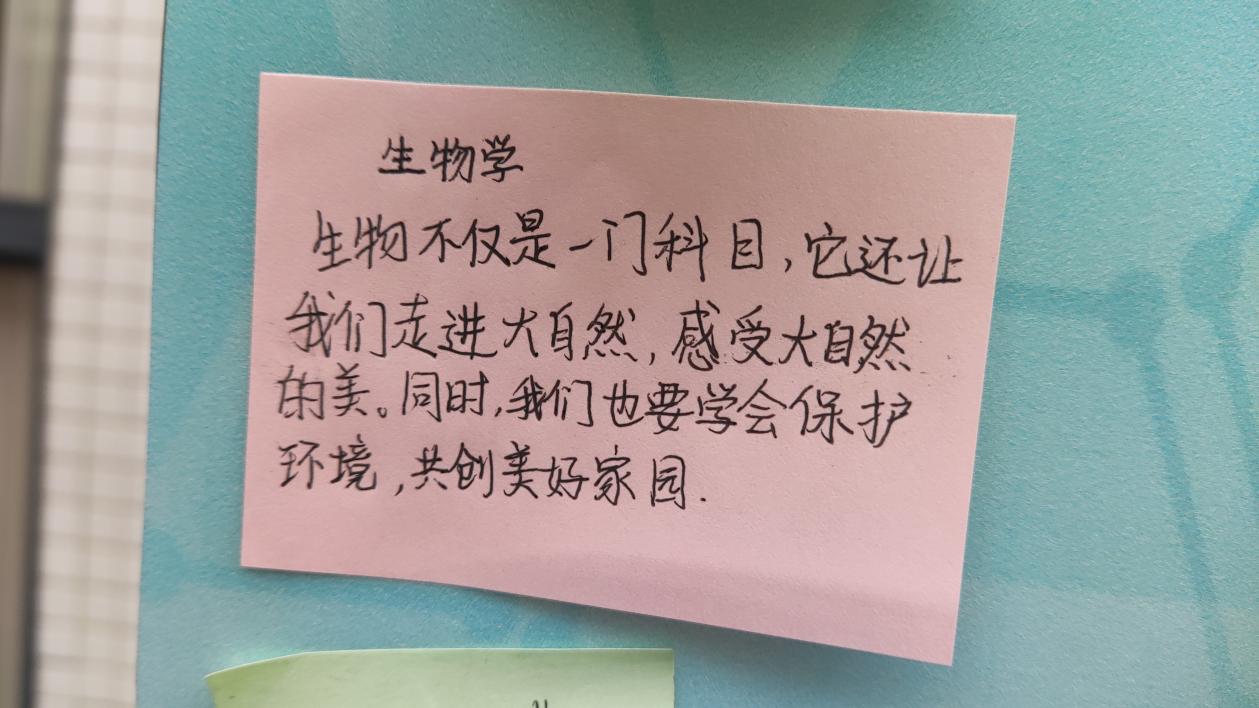 生物学
生物不仅是一门科目,它还让
我们走进大自然,感受大自然
的美。同时,我们也要学会保护
环境,共创美好家园.